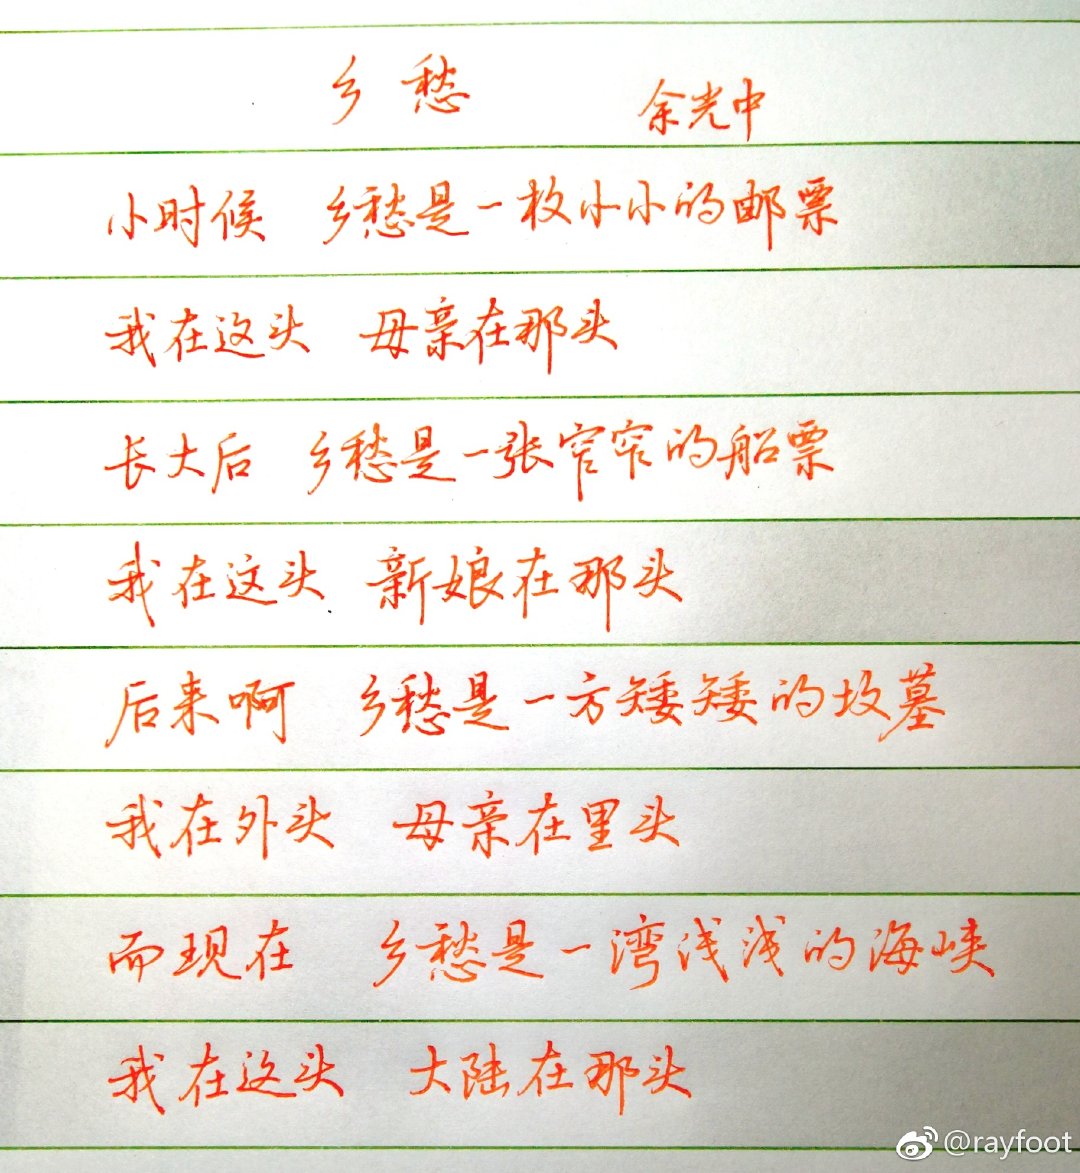 乡愁 余光中
小时候 乡愁是一枚小小的邮票
我在这头 母亲在那头
长大后 乡愁是一张窄窄的船票
我在这头 新娘在那头
后来啊 乡愁是一方矮矮的坟墓
我在外头 母亲在里头
而现在 乡愁是一湾浅浅的海峡
我在这头 大陆在那头
@rayfoot